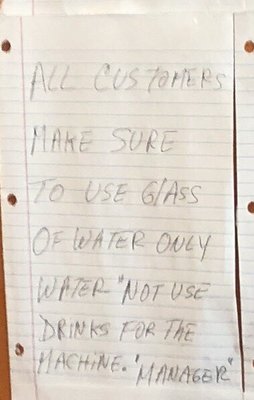 ALL CUSTOMERS
MAKE SURE
TO USE GLASS
OF WATER ONLY
WATER "NOT USE
DRINKS FOR THE
MACHINE. "MANAGER"